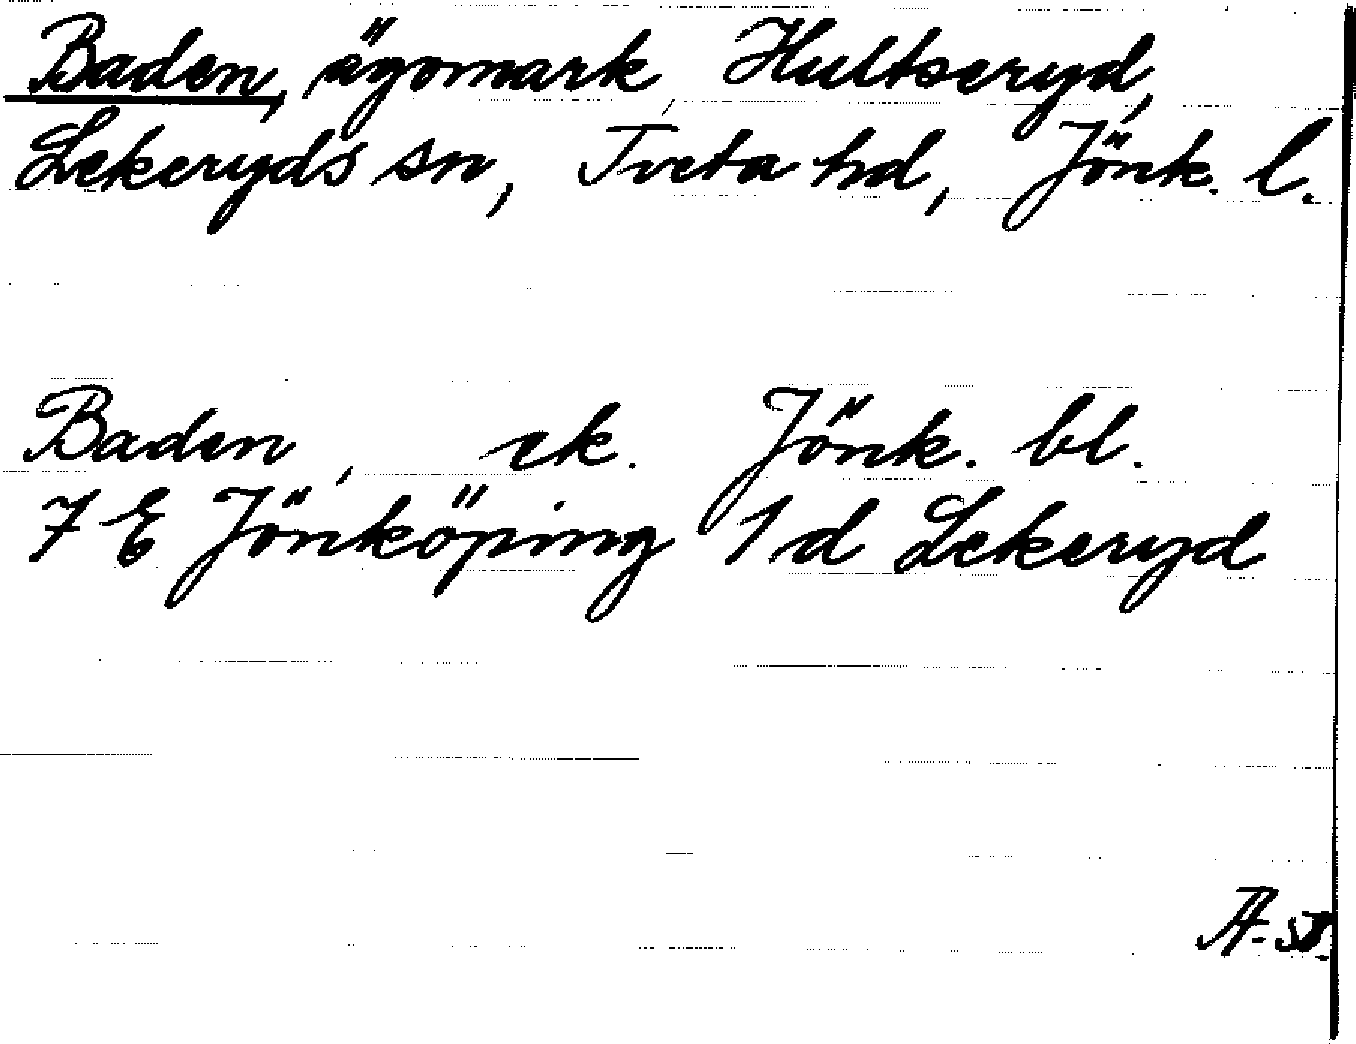 Baden, ägomark, Hultseryd,
Lekeryds sn, Tveta hd, Jönk. l.
Baden, ek. Jönk. bl.
7 E Jönköping 1 d Lekeryd